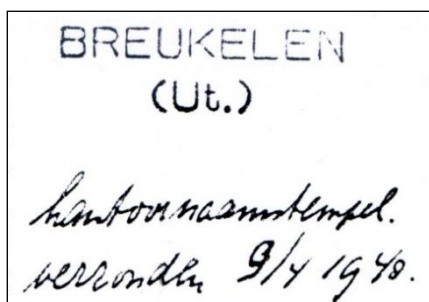 BREUKELEN
(Ut.)
kantoornaamstempel.
verzonden 9/4 1940.